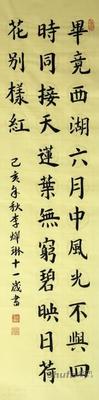 畢竟西湖六月中風光不與四
時同接天蓮葉無窮碧映日荷
花別樣紅
己亥年秋李燁琳十一歲書